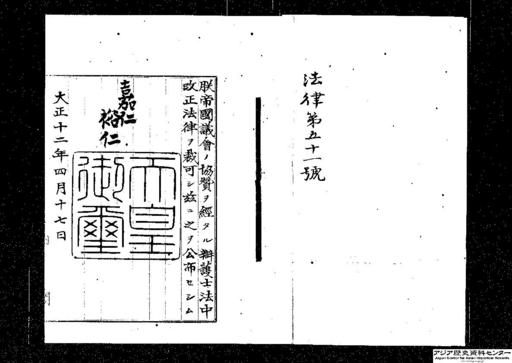 法律第五十一號
朕帝國議會ノ協贊ヲ經タル辯護士法中
改正法律ヲ裁可シ茲ニ之ヲ公布セシム
嘉仁
裕仁
天皇
御璽
大正十二年四月十七日
アジア歴史資料センター
Japan Center for Asian Historical Records